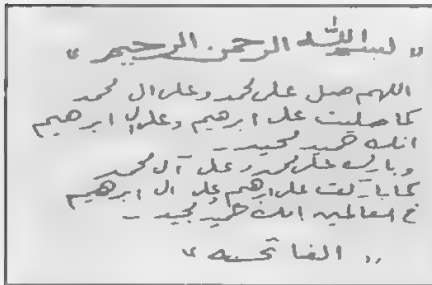 « بسم الله الرحمن الرحيم »
اللهم صل على محمد وعلى ال محمد
كما صليت على ابرهيم وعلى ال ابرهيم
انك حميد مجيد --
وبارك على محمد وعلى آل محمد
كما باركت على ابرهيم وعلى ال ابرهيم
في العالمين انك حميد مجيد --
« الفاتحه »